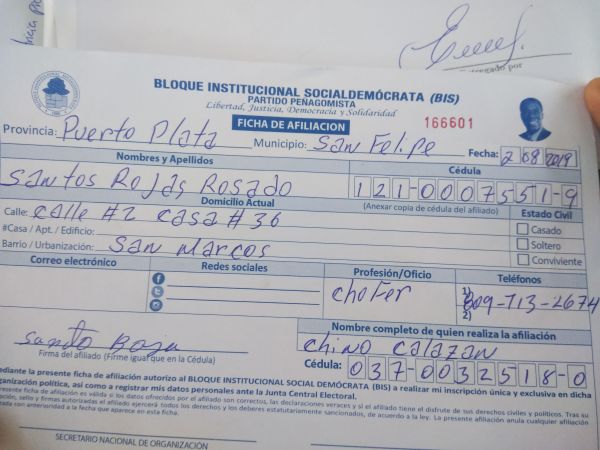 BLOQUE INSTITUCIONAL SOCIALDEMÓCRATA (BIS)
PARTIDO PEÑAGOMISTA
Libertad, Justicia, Democracia y Solidaridad
FICHA DE AFILIACION
166601
Provincia: Puerto Plata Municipio: San Felipe Fecha: 2 08 2019
Nombres y Apellidos Cédula
Santos Rojas Rosado 121-0007551-9
Domicilio Actual (Anexar copia de cédula del afiliado) Estado Civil
Calle: calle #2 casa #36
Casado
#Casa / Apt. / Edificio:
Soltero
Barrio / Urbanización: San Marcos
Conviviente
Correo electrónico Redes sociales Profesión/Oficio Teléfonos
chofer 1) 809-713-2674
2)
Nombre completo de quien realiza la afiliación
chino calazan
Firma del afiliado (Firme igual que en la Cédula)
Cédula: 037-0032518-0
ediante la presente ficha de afiliación autorizo al BLOQUE INSTITUCIONAL SOCIAL DEMÓCRATA (BIS) a realizar mi inscripción única y exclusiva en dicha
ganización política, así como a registrar mis datos personales ante la Junta Central Electoral.
resente ficha de afiliación es válida si los datos ofrecidos por el afiliado son correctos, las declaraciones veraces y si el afiliado tiene el disfrute de sus derechos civiles y políticos. Tras su
ación, sello y firmas autorizadas el afiliado ejercerá todos los derechos y los deberes estatutariamente sancionados, de acuerdo a la ley. La presente afiliación anula cualquier afiliación
zada con anterioridad a la fecha que aparece en esta ficha.
SECRETARIO NACIONAL DE ORGANIZACIÓN